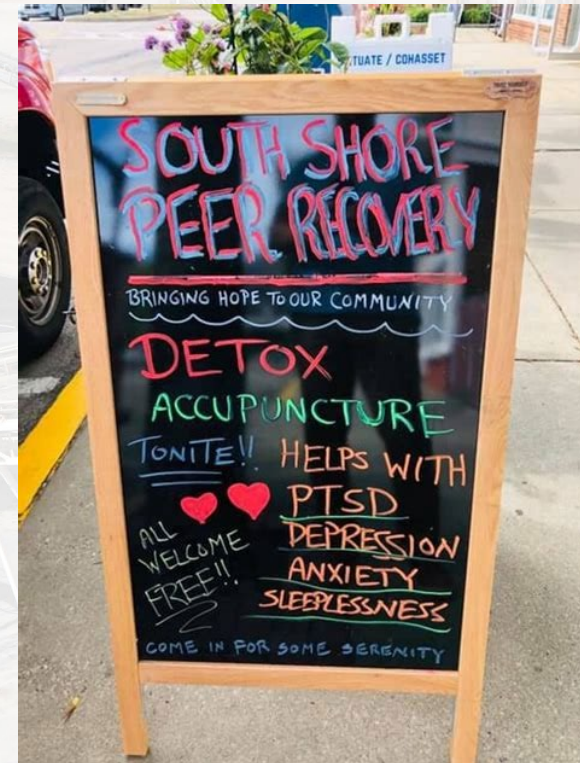 TUATE / COHASSET
SOUTH SHORE
PEER RECOVERY
BRINGING HOPE TO OUR COMMUNITY
DETOX
ACCUPUNCTURE
TONITE!! HELPS WITH
PTSD
DEPRESSION
ANXIETY
SLEEPLESSNESS
ALL
WELCOME
FREE!!
COME IN FOR SOME SERENITY